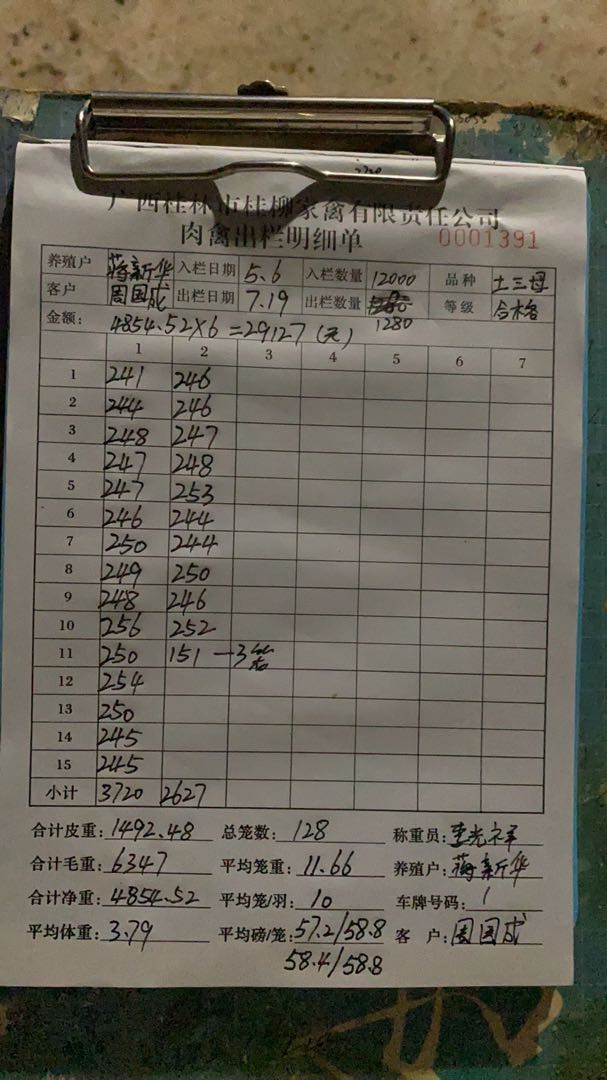 广西桂林市桂柳家禽有限责任公司
肉禽出栏明细单 0001391
养殖户 蒋新华 入栏日期 5.6 入栏数量 12000 品种 土三母
客户 周国成 出栏日期 7.19 出栏数量 1280 等级 合格
金额: 4854.52×6=29127(元)
1 2 3 4 5 6 7
1 241 246
2 244 246
3 248 247
4 247 248
5 247 253
6 246 244
7 250 244
8 249 250
9 248 246
10 256 252
11 250 151 —3笼
12 254
13 250
14 245
15 245
小计 3720 2627
合计皮重: 1492.48 总笼数: 128 称重员:
合计毛重: 6347 平均笼重: 11.66 养殖户: 蒋新华
合计净重: 4854.52 平均笼/羽: 10 车牌号码: /
平均体重: 3.79 平均磅/笼: 57.2/58.8 客 户: 周国成
58.4/58.8